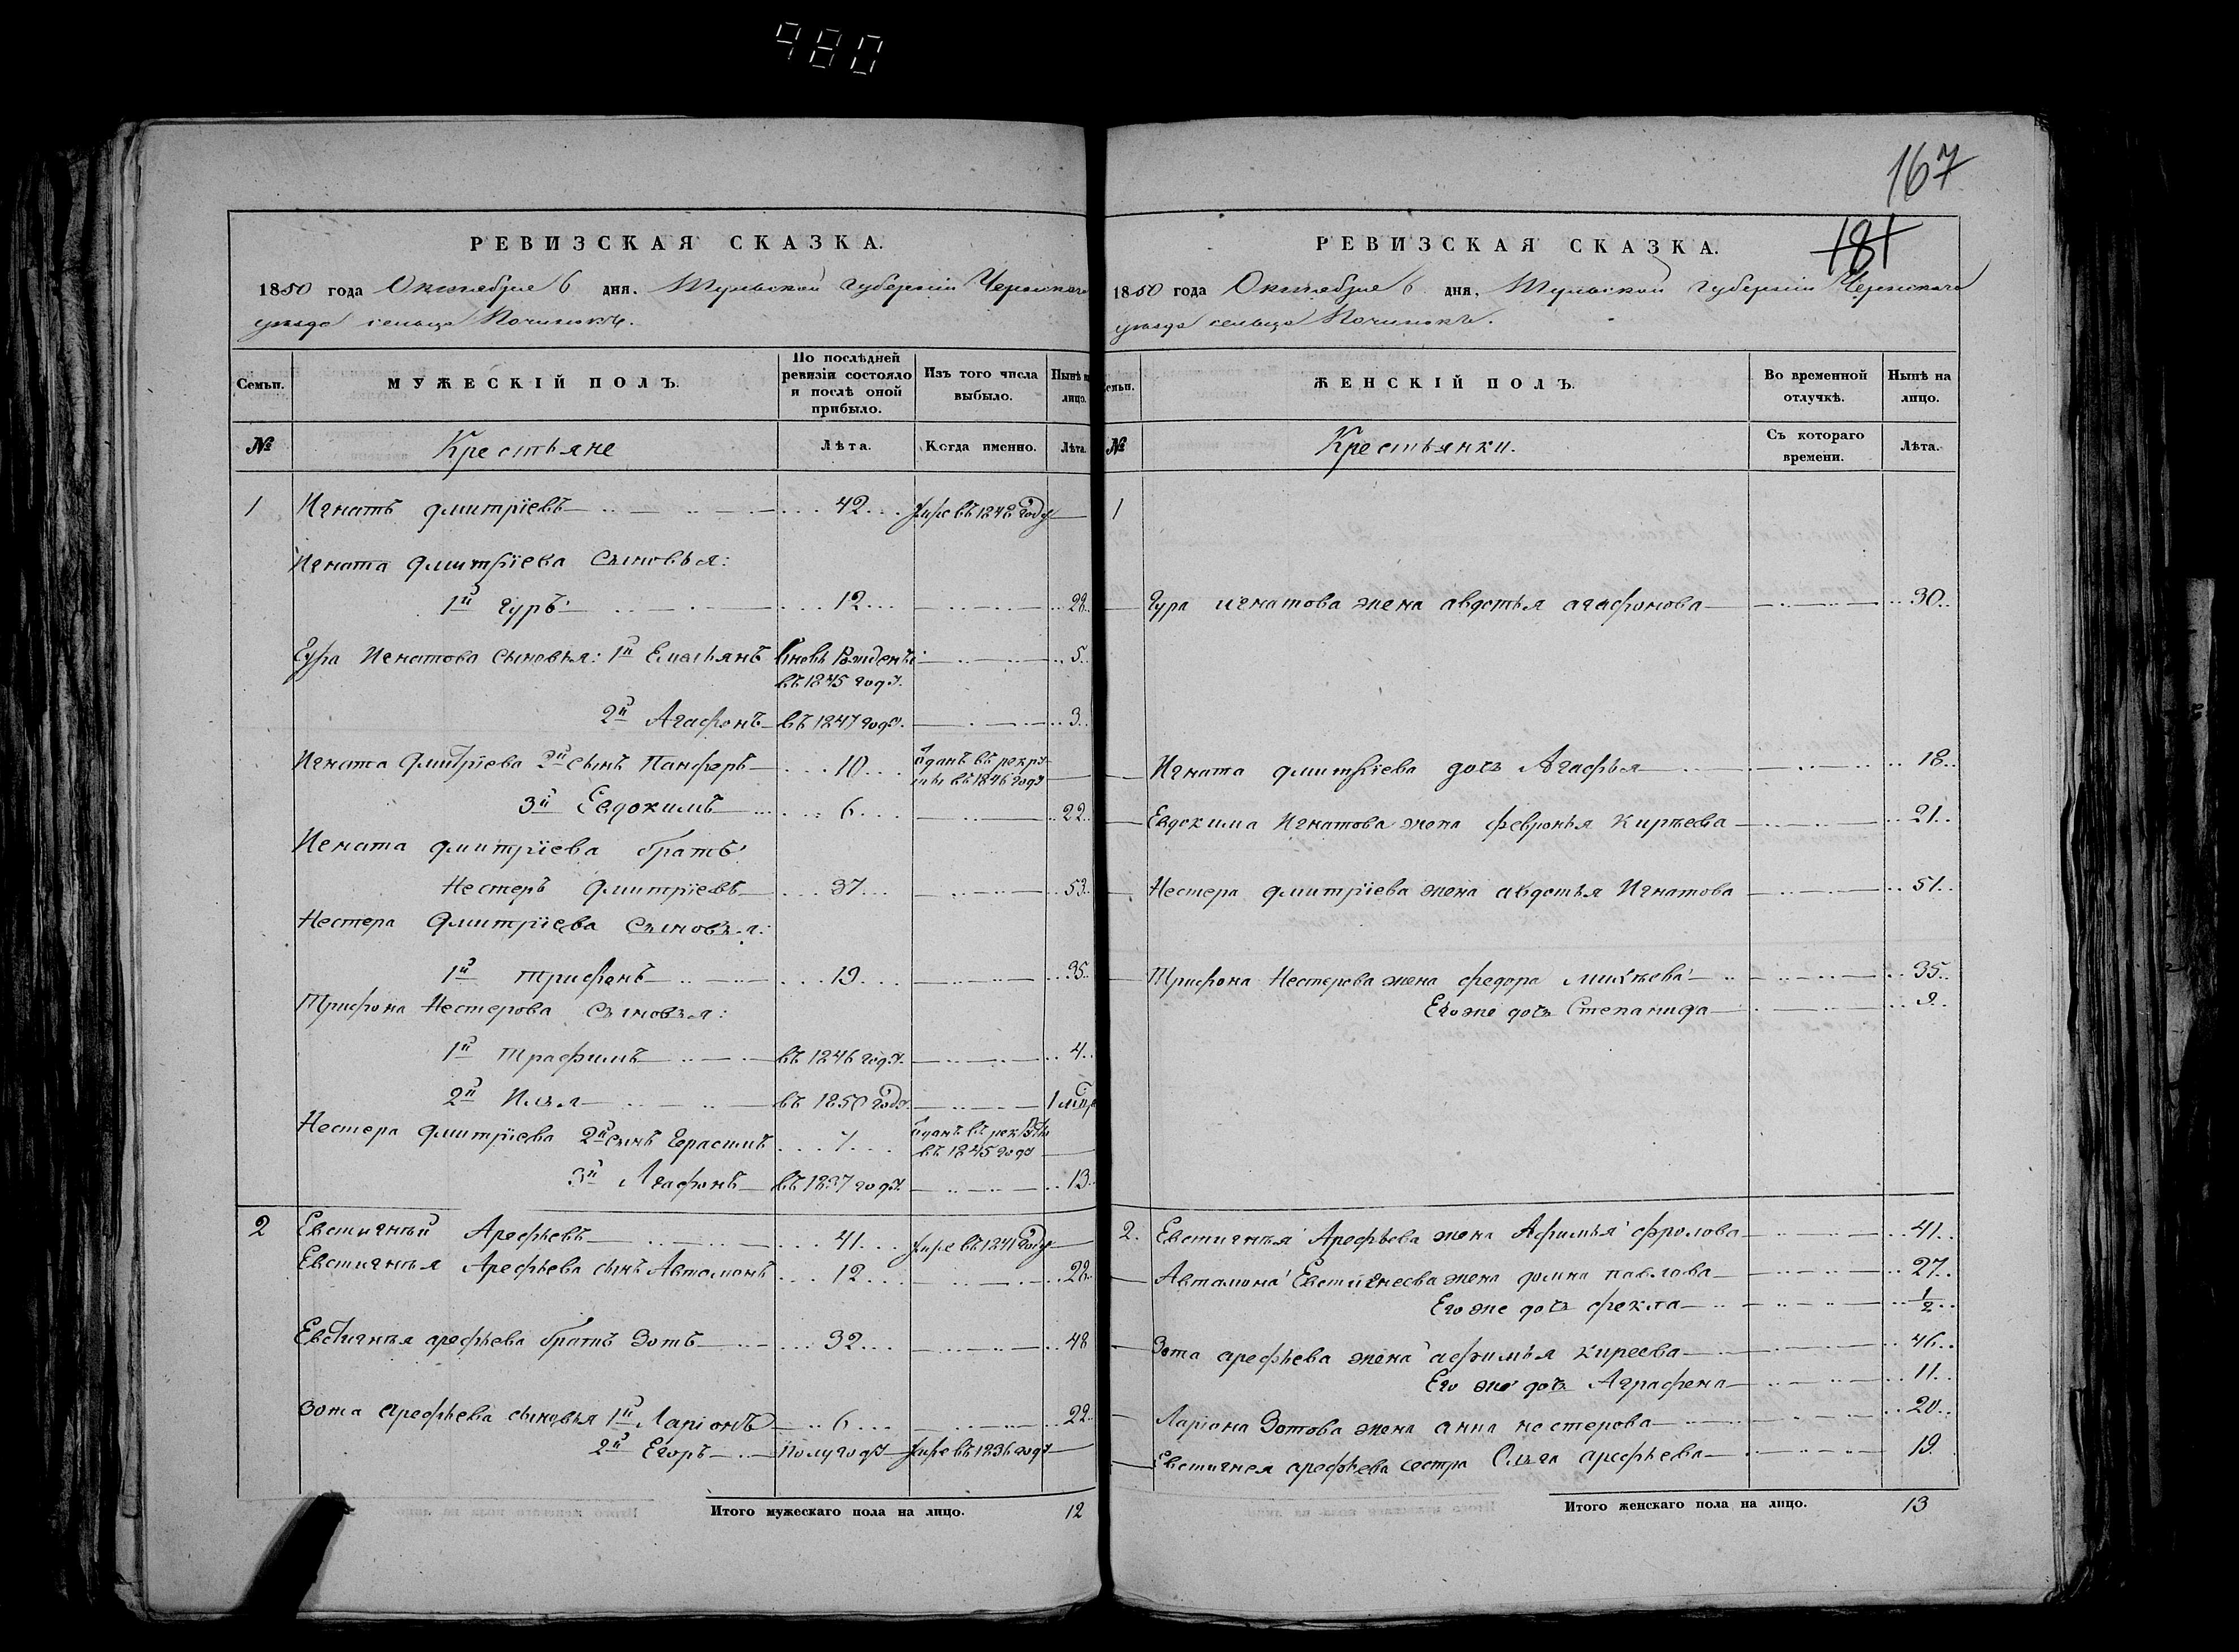 980
167
181
РЕВИЗСКАЯ СКАЗКА.
1850 года Октября 6 дня. Тульской губерніи Чернскаго
уезда сельца Починокъ.
Семьи. МУЖЕСКІЙ ПОЛЪ. По послѣдней ревизіи состояло и послѣ оной прибыло. Изъ того числа выбыло. Нынѣ на лицо.
№ Крестьяне Лѣта. Когда именно. Лѣта.
1 Игнатъ Дмитріевъ 42 умре въ 1842 году
Игната Дмитріева сыновья:
1й Гуръ 12 28
Гура Игнатова сыновья: 1й Емельянъ вновь рожденъ въ 1845 году. 5
2й Агафонъ въ 1847 году. 3
Игната Дмитріева 2й сынъ Панферъ 10 отданъ въ рекруты въ 1846 году
3й Евдокимъ 6 22
Игната Дмитріева братъ
Нестеръ Дмитріевъ 37 53
Нестера Дмитріева сыновья:
1й Трифонъ 19 35
Трифона Нестерова сыновья:
1й Трафимъ въ 1846 году. 4
2й Илья въ 1850 году. 1
Нестера Дмитріева 2й сынъ Герасимъ 7 отданъ въ рекруты въ 1845 году
3й Агафонъ въ 1837 году. 13
2 Евстигней Арефьевъ 41 умре въ 1841 году
Евстигнея Арефьева сынъ Автамонъ 12 28
Евстигнея арефьева братъ Зотъ 32 48
Зота арефьева сыновья 1й Ларіонъ 6 22
2й Егоръ полугоду умре въ 1836 году
Итого мужескаго пола на лицо. 12
РЕВИЗСКАЯ СКАЗКА.
1850 года Октября 6 дня. Тульской губерніи Чернскаго
уезда сельца Починокъ.
Семьи. ЖЕНСКІЙ ПОЛЪ. Во временной отлучкѣ. Нынѣ на лицо.
№ Крестьянки. Съ котораго времени. Лѣта.
1
Гура игнатова жена авдотья агафонова 30
Игната дмитріева дочь Агафья 18
Евдокима Игнатова жена февронья Киреева 21
Нестера дмитріева жена авдотья Игнатова 51
Трифона Нестерова жена федора михѣева 35
Его же дочь Степанида 9
2. Евстигнея Арефьева жена Афимья фролова 41
Автамона Евстигнеева жена домна павлова 27
Его же дочь фекла 1/2
Зота арефьева жена афимья киреева 46
Его же дочь Аграфена 11
Ларіона Зотова жена анна нестерова 20
Евстигнея арефьева сестра Ольга арефьева 19
Итого женскаго пола на лицо. 13